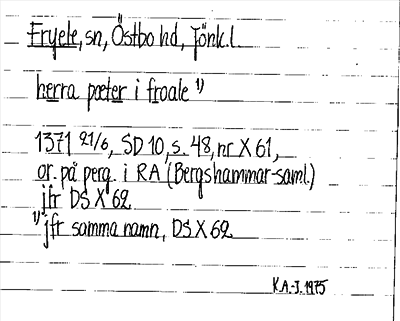 Fryele, sn, Östbo hd, Jönk.l.
herra pæter i froale 1)
1371 21/6, SD 10, s. 48, nr X 61,
or. på perg. i RA (Bergshammar-saml.)
jfr DS X 62
1) jfr samma namn, DS X 62
K.A.-J. 1975